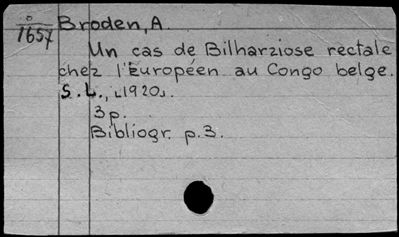 o
1657
Broden, A.
Un cas de Bilharziose rectale
chez l'Européen au Congo belge.
S.L., [1920].
3p.
Bibliogr. p.3.